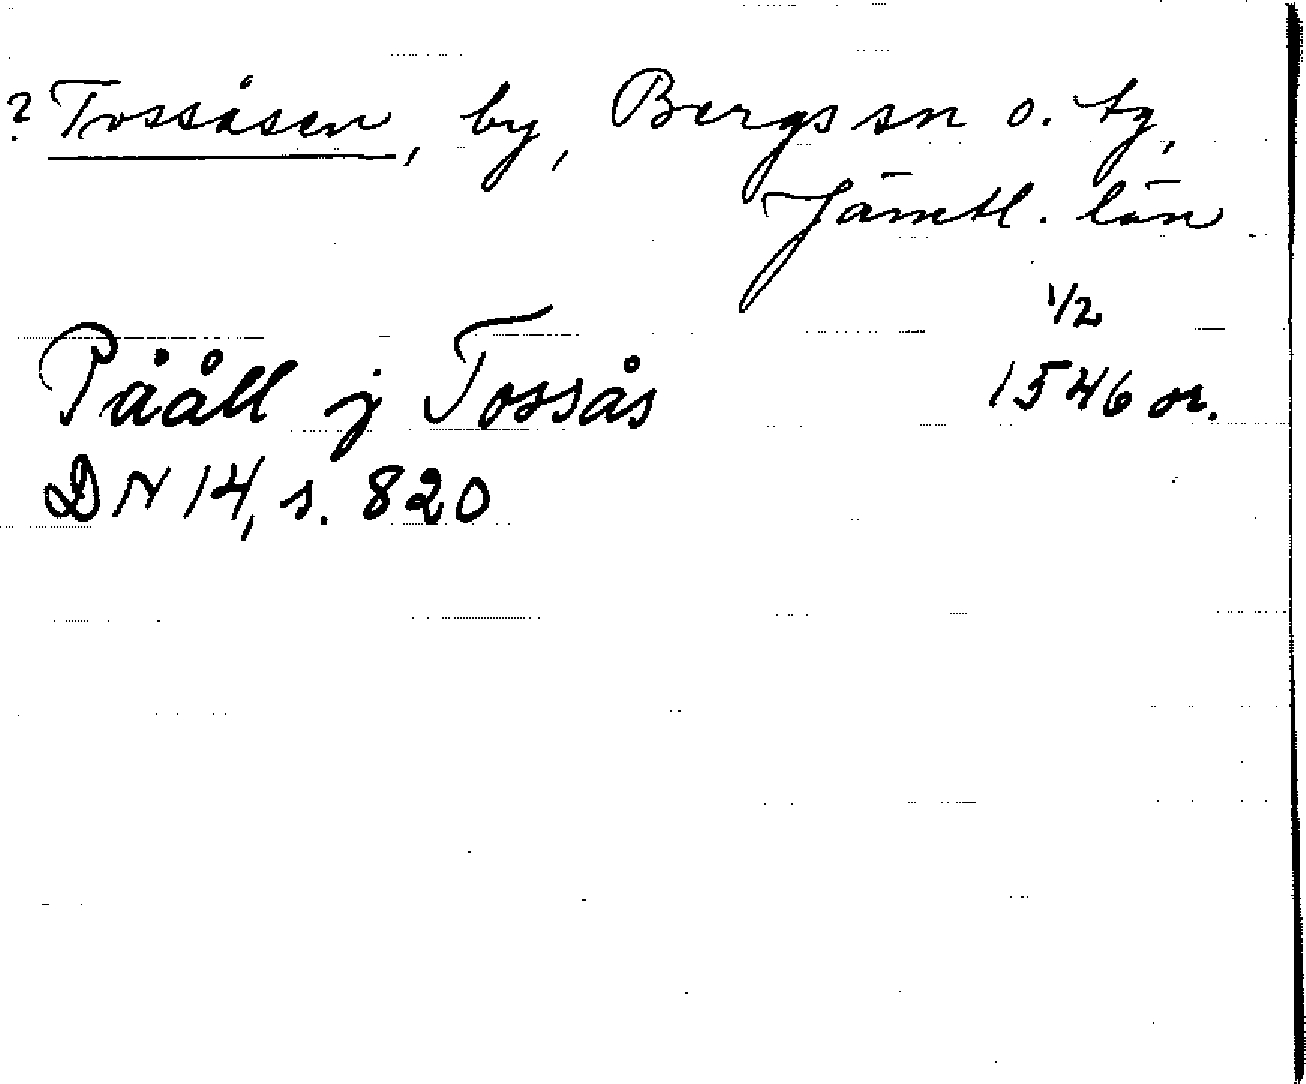 ? Tossåsen, by, Bergs sn o. tg,
Jämtl. län
1/2
Pååll j Tossås 1546 or.
DN 14, s. 820